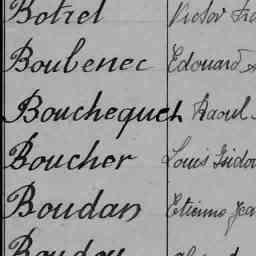 Botrel Victor
Boubenec Edouard
Bouchequet Raoul
Boucher Louis Isidor
Boudan Etienne Jea
Boudou